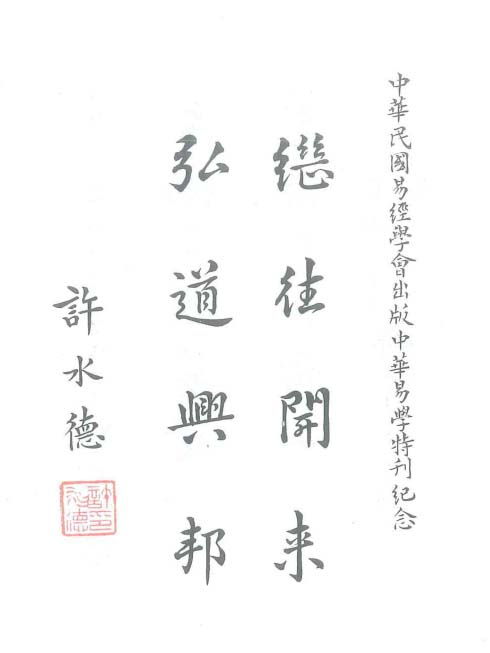 中華民國易經學會出版中華易學特刊紀念
繼往開来
弘道興邦
許水德
許水德印